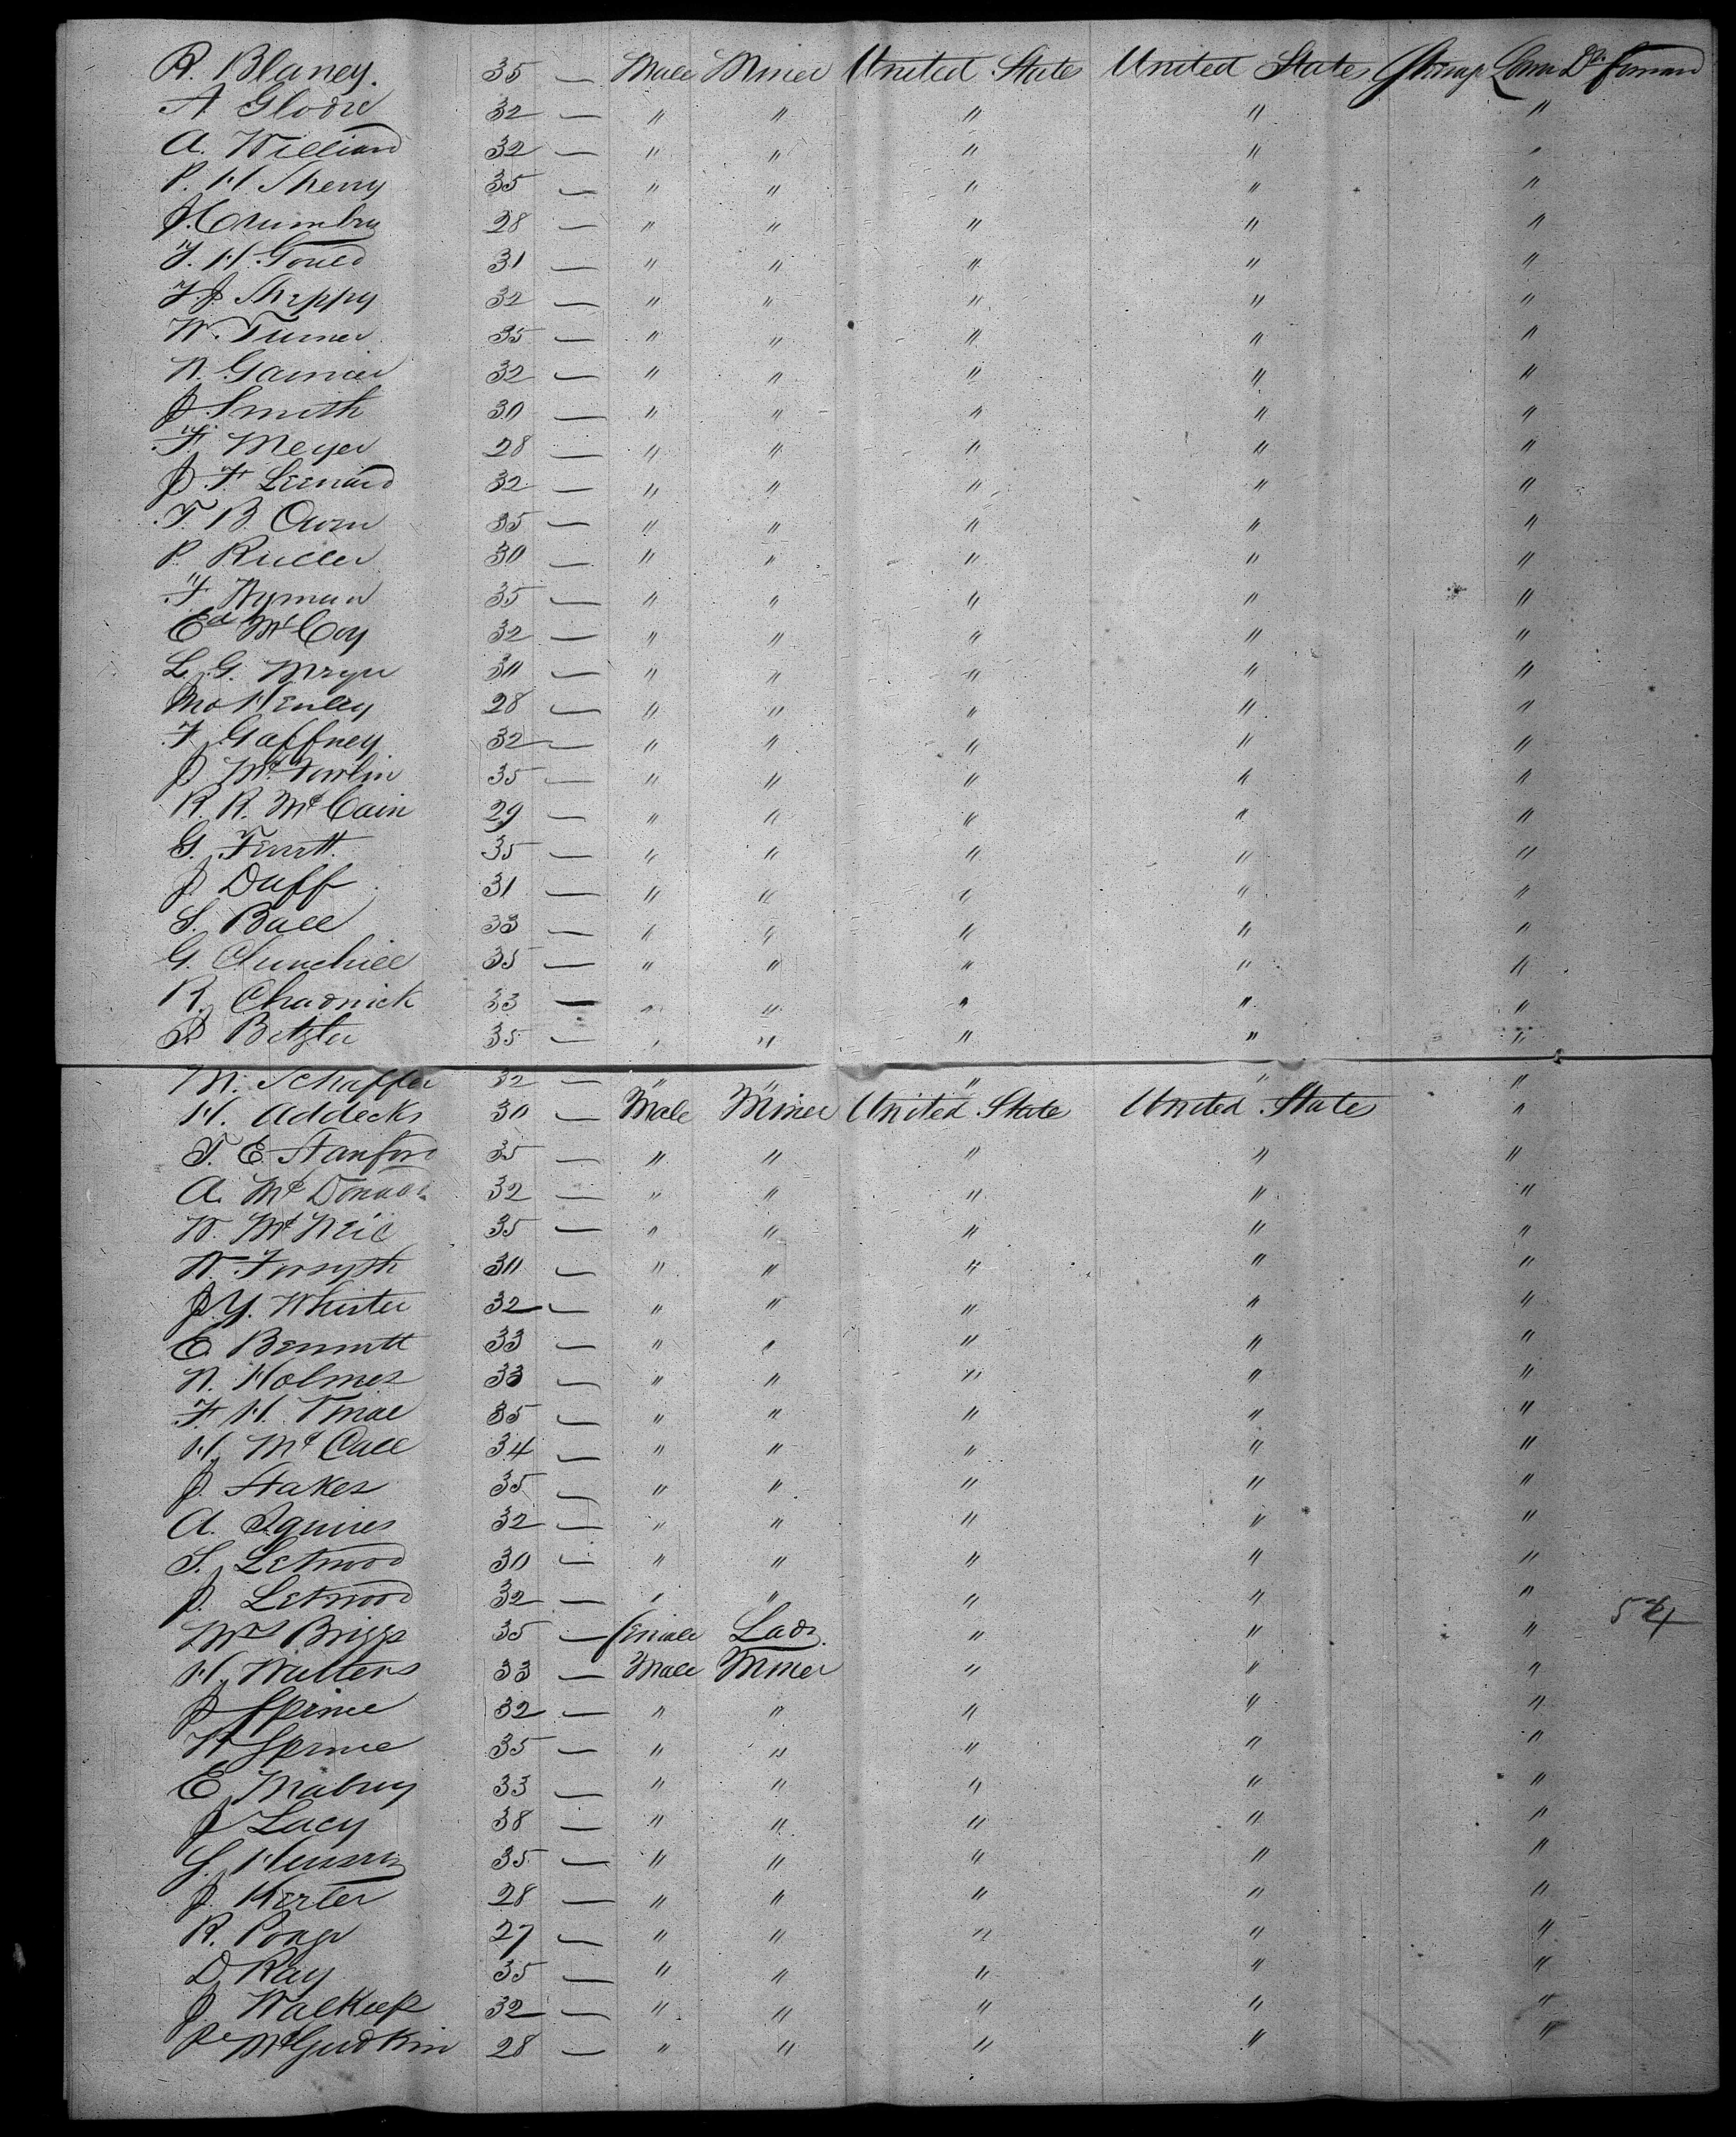 R. Blaney. 35 — Male Miner United States United States
A Glodre 32 — " " " " "
A. Williard 32 — " " " " "
P. H Sherry 35 — " " " " "
J. Crumbry 28 — " " " " "
T. H. Gould 31 — " " " " "
T. J. Sheppy 32 — " " " " "
W. Turner 35 — " " " " "
N. Garnier 32 — " " " " "
J Smith 30 — " " " " "
F. Meyer 28 — " " " " "
J F. Leenard 32 — " " " " "
T. B. Owen 35 — " " " " "
P. Ruller 30 — " " " " "
F Wyman 35 — " " " " "
Ed McCoy 32 — " " " " "
L. G. 30 — " " " " "
Henley 28 — " " " " "
F. Gaffney 32 — " " " " "
J 35 — " " " " "
R. R. McCain 29 — " " " " "
G. 35 — " " " " "
J. Duff 31 — " " " " "
S. Ball 33 — " " " " "
G. Churchill 35 — " " " " "
R. Chadwick 33 — " " " " "
Betzler 35 — " " " " "
M. Schaffer 32 — " " " " "
H. Addecks 30 — Male Miner United State United States "
T. E Stanford 35 — " " " " "
A. McDonald 32 — " " " " "
W. McNeil 35 — " " " " "
W. Forsyth 30 — " " " " "
J. Y. Whister 32 — " " " " "
E. Bennett 33 — " " " " "
N. Holmes 33 — " " " " "
F. H. 35 — " " " " "
H. McCall 34 — " " " " "
J. Stakes 35 — " " " " "
A. Squires 32 — " " " " "
S. Letwood 30 — " " " " "
J. Letwood 32 — " " " " "
Mrs Briggs 35 — female Lady " " " 54
H. Walters 33 — Male Miner " " "
J Sprine 32 — " " " " "
W Sprine 35 — " " " " "
E Mabry 33 — " " " " "
J Lacy 38 — " " " " "
S. 35 — " " " " "
J. Kerler 28 — " " " " "
R. Poage 27 — " " " " "
D. Ray 35 — " " " " "
J. Walkup 32 — " " " " "
28 — " " " " "